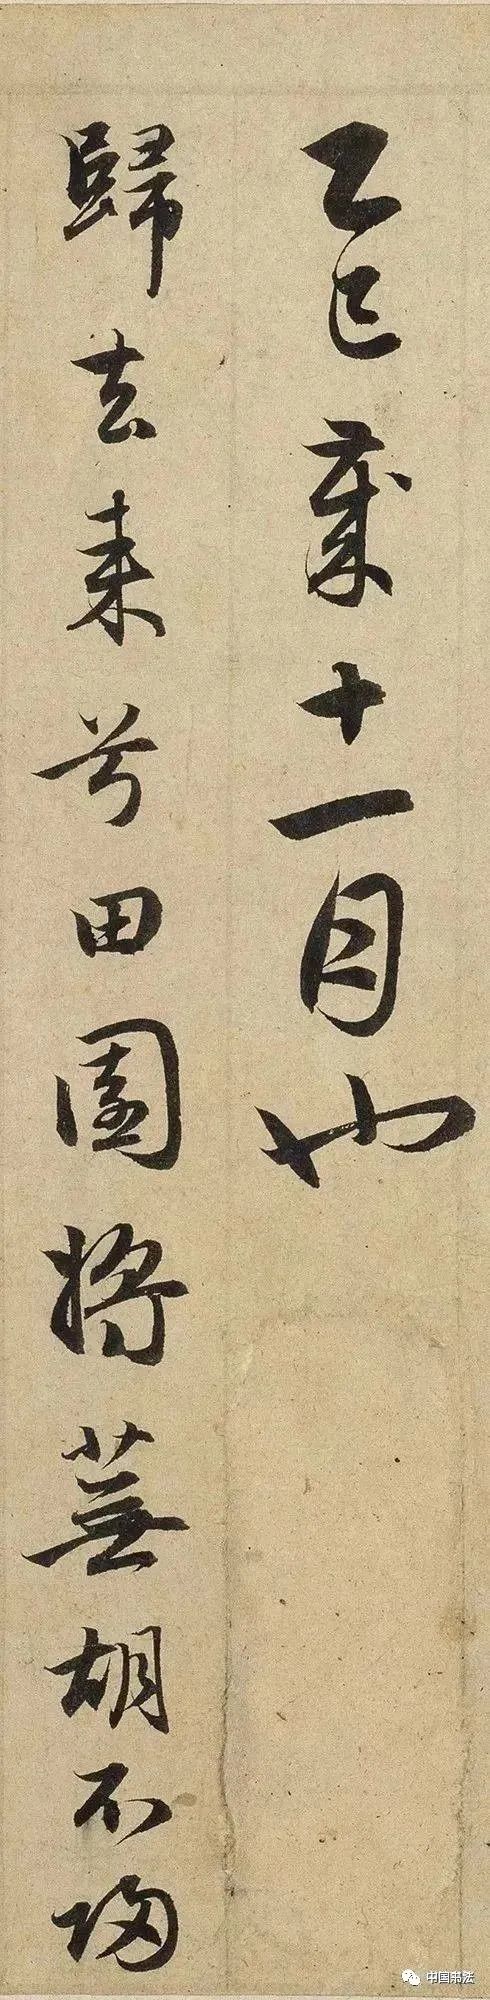 乙巳歲十一月也
歸去来兮田園將蕪胡不歸
中国书法